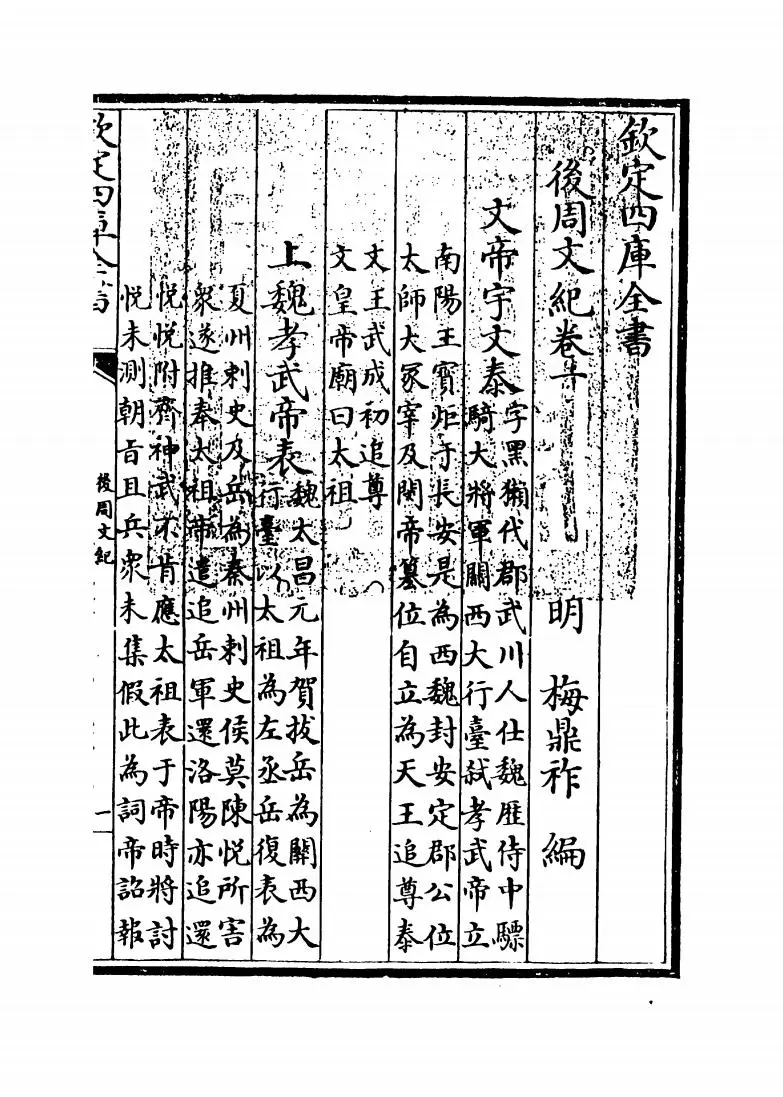 欽定四庫全書
後周文紀卷一 明 梅鼎祚 編
文帝宇文泰 字黑獺代郡武川人仕魏歴侍中驃
騎大將軍關西大行臺弑孝武帝立
南陽王寳炬于長安是為西魏封安定郡公位
太師大冢宰及閔帝簒位自立為天王追尊泰
文王武成初追尊
文皇帝廟曰太祖
上魏孝武帝表 魏太昌元年賀拔岳為關西大
行臺以太祖為左丞岳復表為
夏州刺史及岳為秦州刺史侯莫陳悦所害
衆遂推奉太祖帝遣追岳軍還洛陽亦追還
悦悦附齊神武不肯應太祖表于帝時將討
悦未測朝旨且兵衆未集假此為詞帝詔報
欽定四庫全書
後周文紀
一